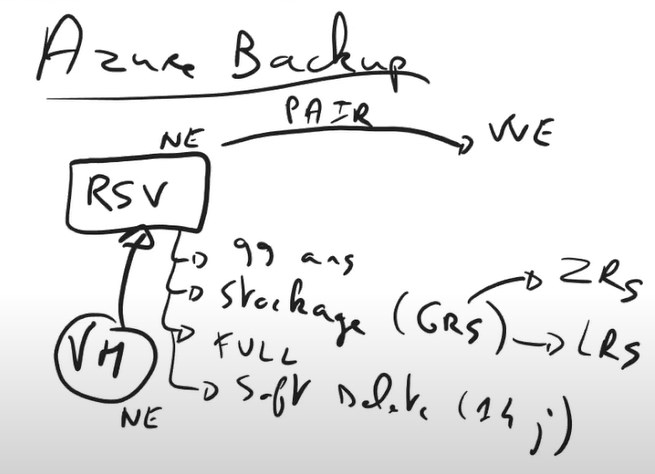 Azure Backup
PAIR
NE
WE
RSV
99 ans
Stockage (GRS)
ZRS
LRS
FULL
VM
Soft Delete (14 j)
NE